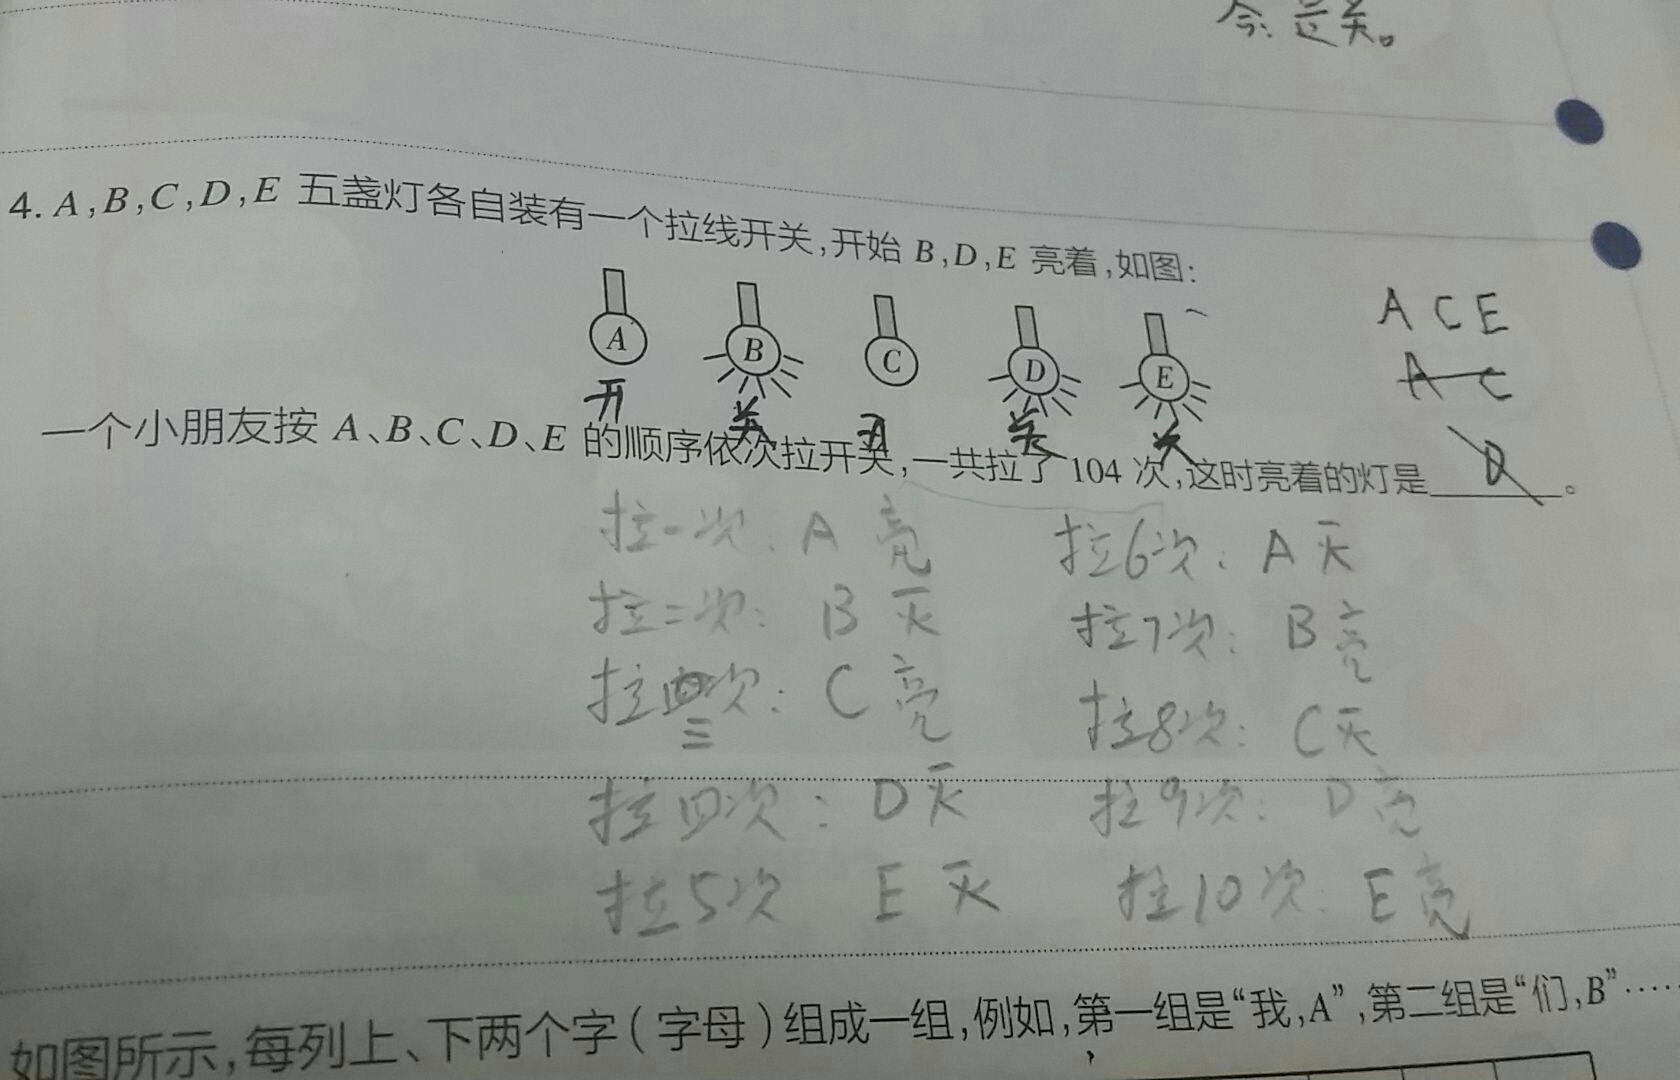 念:是关。
4. A,B,C,D,E 五盏灯各自装有一个拉线开关,开始 B,D,E 亮着,如图:
A B C D E
A C E
A C
开 关 开 关 关
一个小朋友按 A、B、C、D、E 的顺序依次拉开关,一共拉了 104 次,这时亮着的灯是______。
拉一次:A 亮 拉6次:A 灭
拉二次:B 灭 拉7次:B 亮
拉三次:C 亮 拉8次:C灭
拉四次:D灭 拉9次:D亮
拉5次 E 灭 拉10次:E亮
如图所示,每列上、下两个字(字母)组成一组,例如,第一组是“我,A”,第二组是“们,B”……